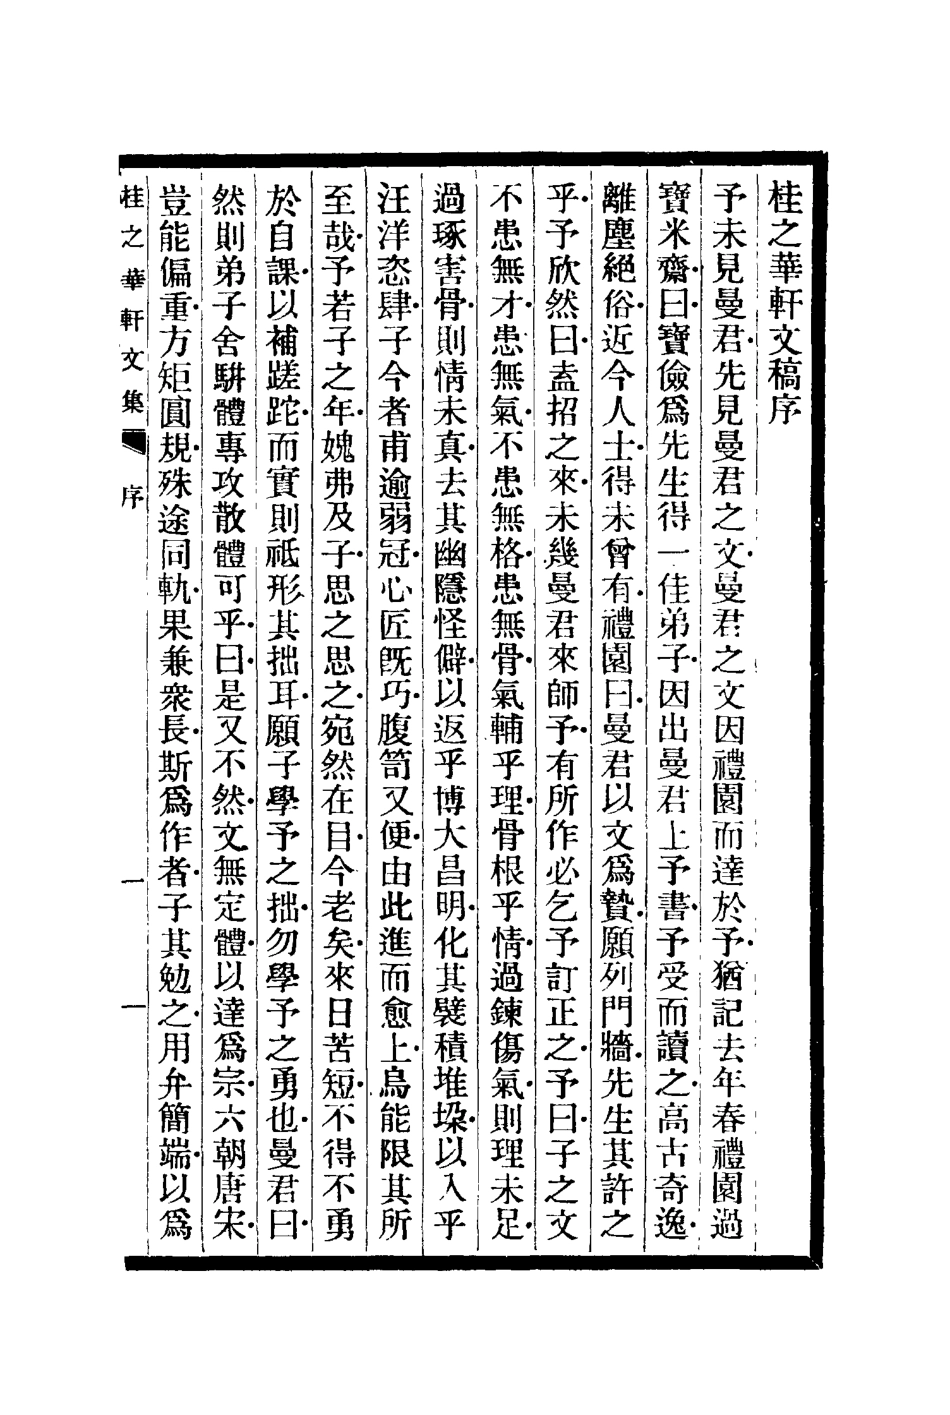 桂之華軒文稿序
予未見曼君先見曼君之文曼君之文因禮園而達於予猶記去年春禮園過
寶米齋曰寶儉爲先生得一佳弟子因出曼君上予書予受而讀之高古奇逸
離塵絕俗近今人士得未曾有禮園曰曼君以文爲贄願列門牆先生其許之
乎予欣然曰盍招之來未幾曼君來師予有所作必乞予訂正之予曰子之文
不患無才患無氣不患無格患無骨氣輔乎理骨根乎情過鍊傷氣則理未足
過琢害骨則情未真去其幽隱怪僻以返乎博大昌明化其襞積堆垛以入乎
汪洋恣肆子今者甫逾弱冠心匠既巧腹笥又便由此進而愈上烏能限其所
至哉予若子之年媿弗及子思之思之宛然在目今老矣來日苦短不得不勇
於自課以補蹉跎而實則祗形其拙耳願子學予之拙勿學予之勇也曼君曰
然則弟子舍騈體專攻散體可乎曰是又不然文無定體以達爲宗六朝唐宋
豈能偏重方矩圓規殊途同軌果兼衆長斯爲作者子其勉之用弁簡端以爲
桂之華軒文集 序 一 一